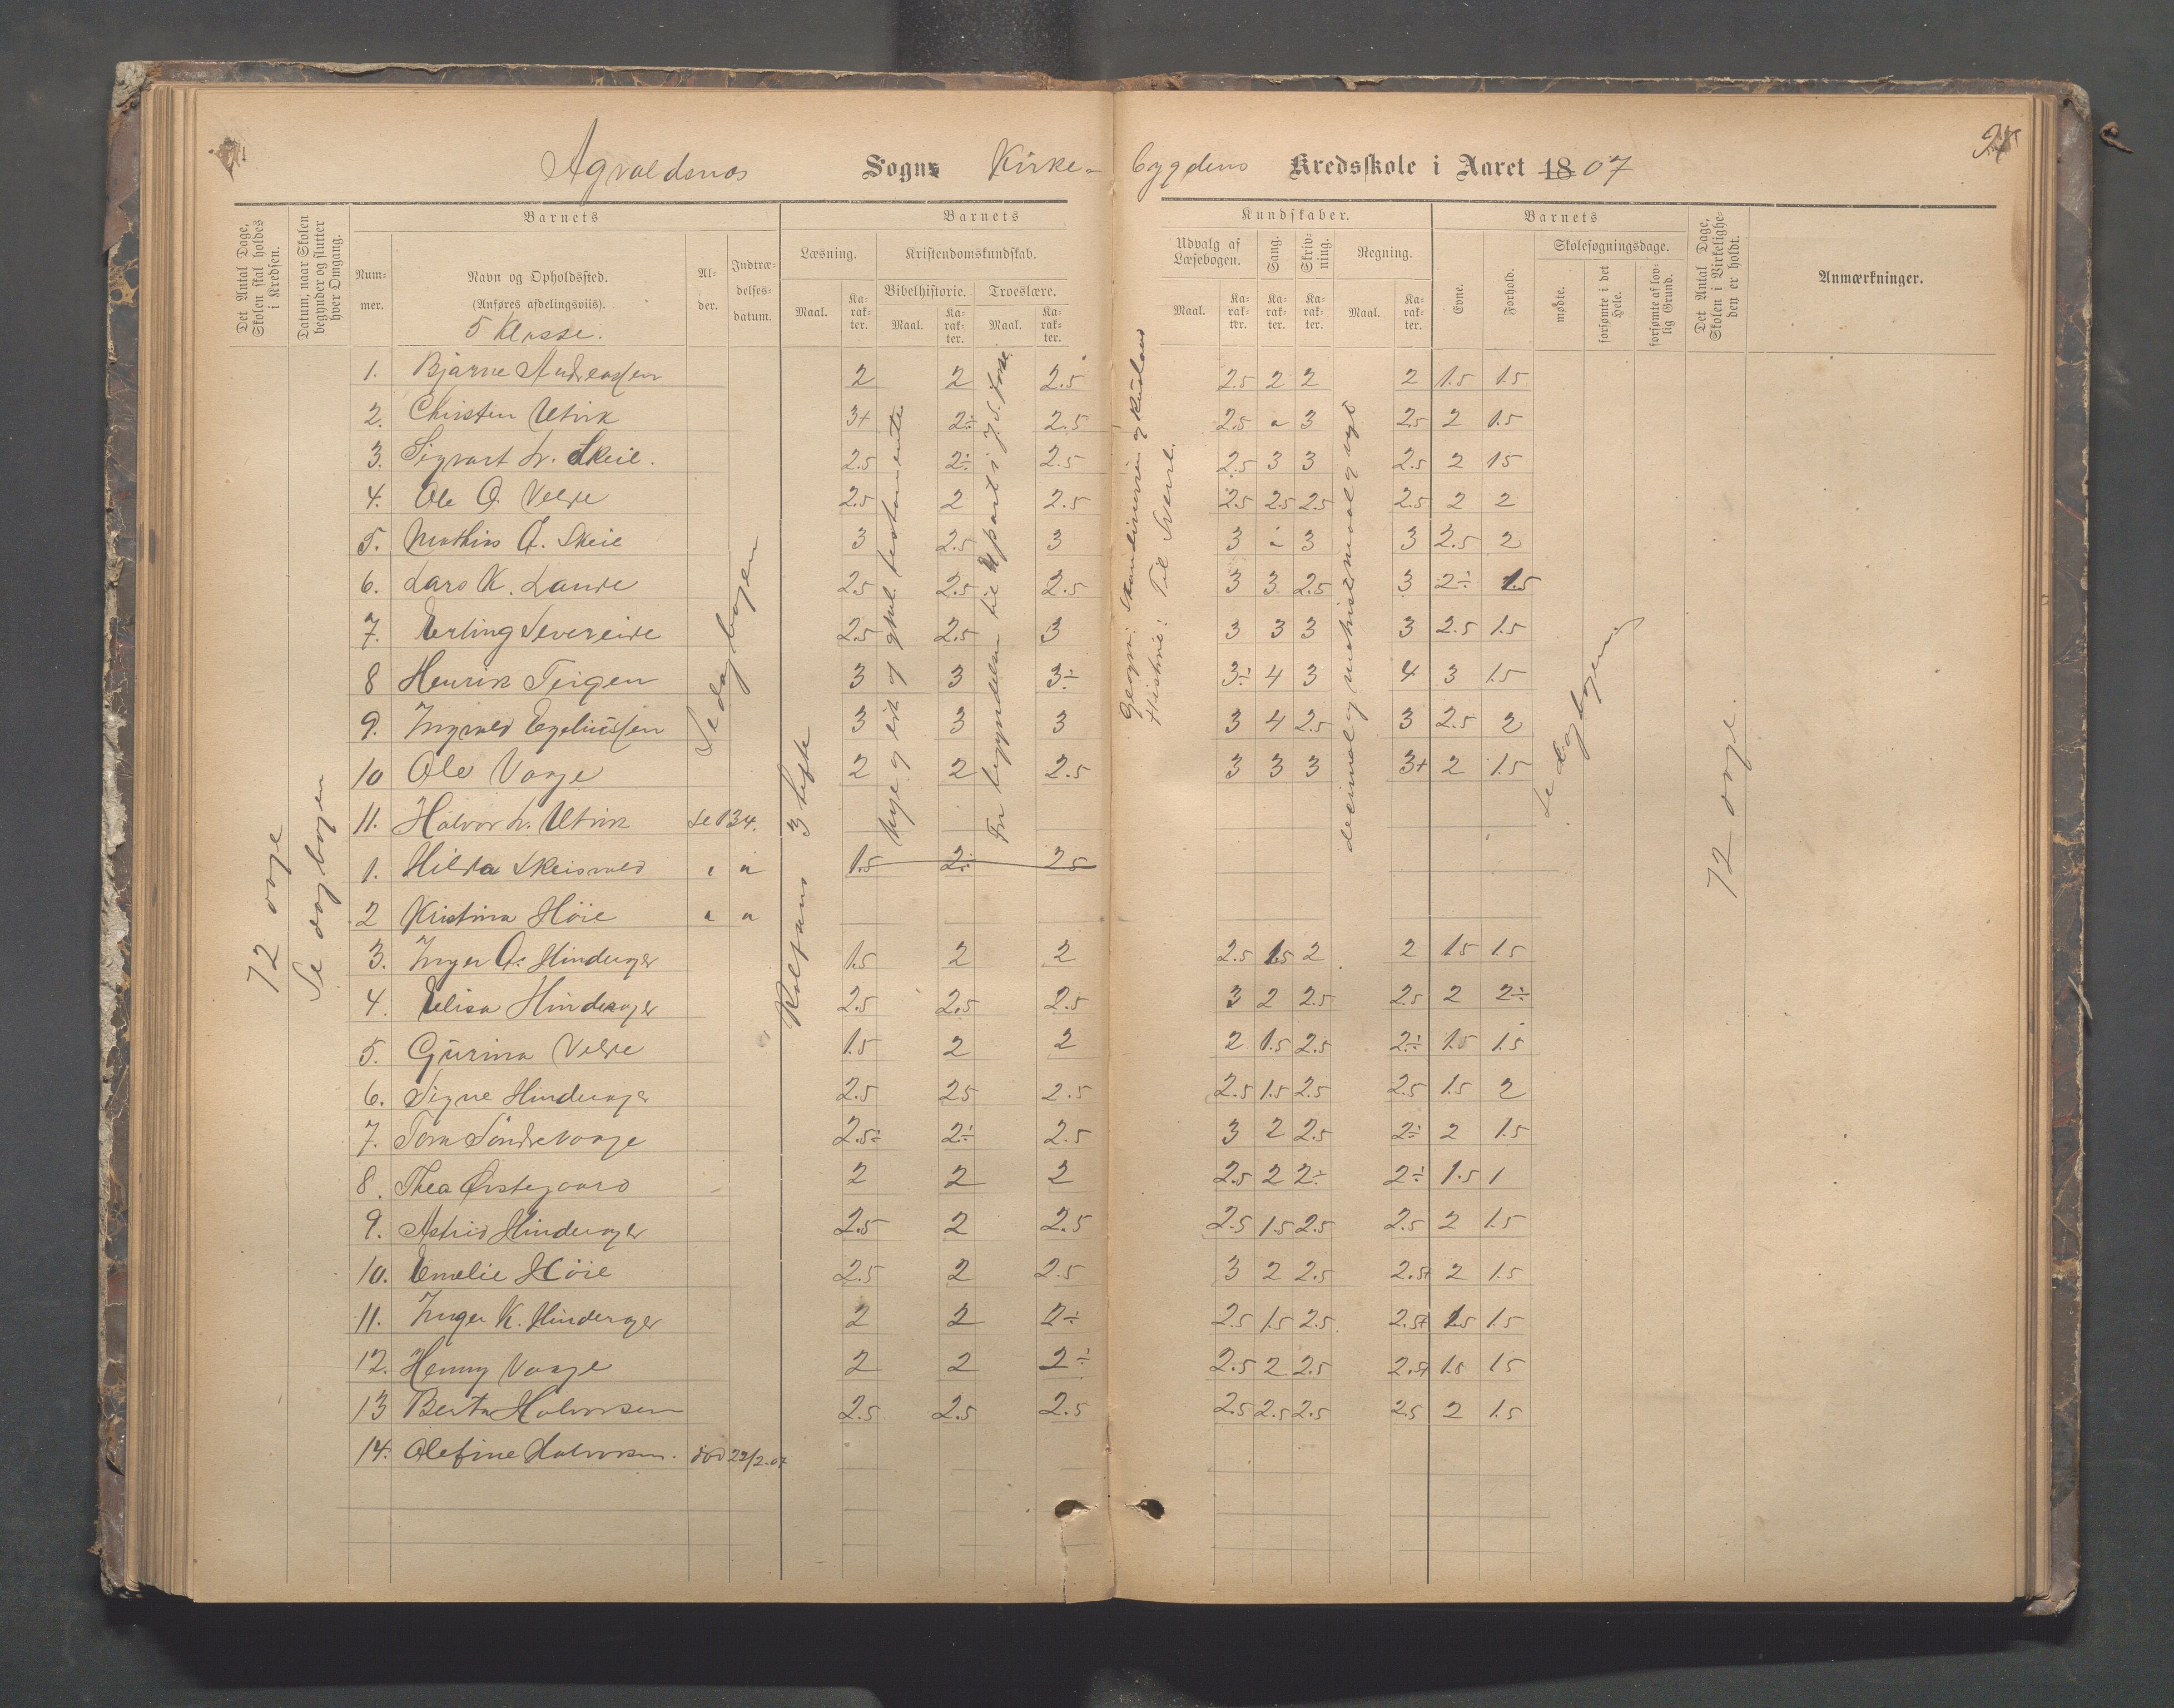 Agvaldsnæs Sogns Kirke-bygdens Kredsskole i Aaret 1807
24
Det Antal Dage, Skolen skal holdes i Kredsen.
Datum, naar Skolen begynder og slutter hver Omgang.
Barnets
Nummer.
Navn og Opholdssted.
(Anføres afdelingsviis).
5 Klasse.
Alder.
Indtrædelsesdatum.
Barnets
Læsning.
Maal.
Karakter.
Kristendomskundskab.
Bibelhistorie.
Maal.
Karakter.
Troeslære.
Maal.
Karakter.
Kundskaber.
Udvalg af Læsebogen.
Maal.
Karakter.
Sang.
Karakter.
Skrivning.
Karakter.
Regning.
Maal.
Karakter.
Barnets
Evne.
Forhold.
Skolesøgningsdage.
mødte.
forsømte i det Hele.
forsømte af lovlig Grund.
Det Antal Dage, Skolen i Virkeligheden er holdt.
Anmærkninger.
1. Bjarne Andreassen 2 2 2.5 2.5 2 2 2 1.5 1.5
2. Christen Utvik 3+ 2÷ 2.5 2.5 " 3 2.5 2 1.5
3. Sigvart L. Skeie. 2.5 2÷ 2.5 2.5 3 3 2.5 2 15
4. Ole O. Velde 2.5 2 2.5 2.5 2.5 2.5 2.5 2 2
5. Mathias G. Skeie 3 2.5 3 3 " 3 3 2.5 2
6. Lars K. Lande 2.5 2.5 2.5 3 3 2.5 3 2÷ 1.5
7. Erling Severeide 2.5 2.5 3 3 3 3 3 2.5 1.5
8 Henrik Teigen 3 3 3÷ 3÷ 4 3 4 3 1.5
9. Ingvald Egeliussen 3 3 3 3 4 2.5 3 2.5 2
10 Ole Vaage 2 2 2.5 3 3 3 3+ 2 1.5
11. Halvor L. Utvik se 134.
1. Hilda Skeisvold " " 1.5 2÷ 25
2 Kristina Höie " "
3. Inger O. Hinderager 1.5 2 2 2.5 1.5 2 2 15 1.5
4. Elisa Hinderager 2.5 2.5 2.5 3 2 2.5 2.5 2 2÷
5. Gurina Velde 1.5 2 2 2 1.5 2.5 2÷ 1.5 1.5
6. Signe Hinderager 2.5 25 2.5 2.5 1.5 2.5 2.5 1.5 2
7. Tora Söndrevaage 2.5÷ 2÷ 2.5 3 2 2.5 2÷ 2 1.5
8. Thea Östegaard 2 2 2 2.5 2 2÷ 2÷ 1.5 1
9. Astrid Hinderager 2.5 2 2.5 2.5 1.5 2.5 2.5 2 1.5
10. Emelie Höie 2.5 2 2.5 3 2 2.5 2.5+ 2 1.5
11. Inger K. Hinderager 2 2 2÷ 2.5 1.5 2.5 2.5+ 1.5 1.5
12. Henny Vaage 2 2 2÷ 2.5 2 2.5 2.5+ 1.5 15
13 Berta Halvorsen 2.5 2.5 2.5 2.5 2.5 2.5 25 2 1.5
14. Olefine Halvorsen. död 22/2.07
72 dage
Se dagbogen
Se dagbogen
Rolfsens 3 hefte
nye og gml. testamente
Fra begyndelsen til 4 part i
Geogr: Skandinavien og Rusland
Historie: Til Sverre.
decimal og
Se dagbogen
72 dage.